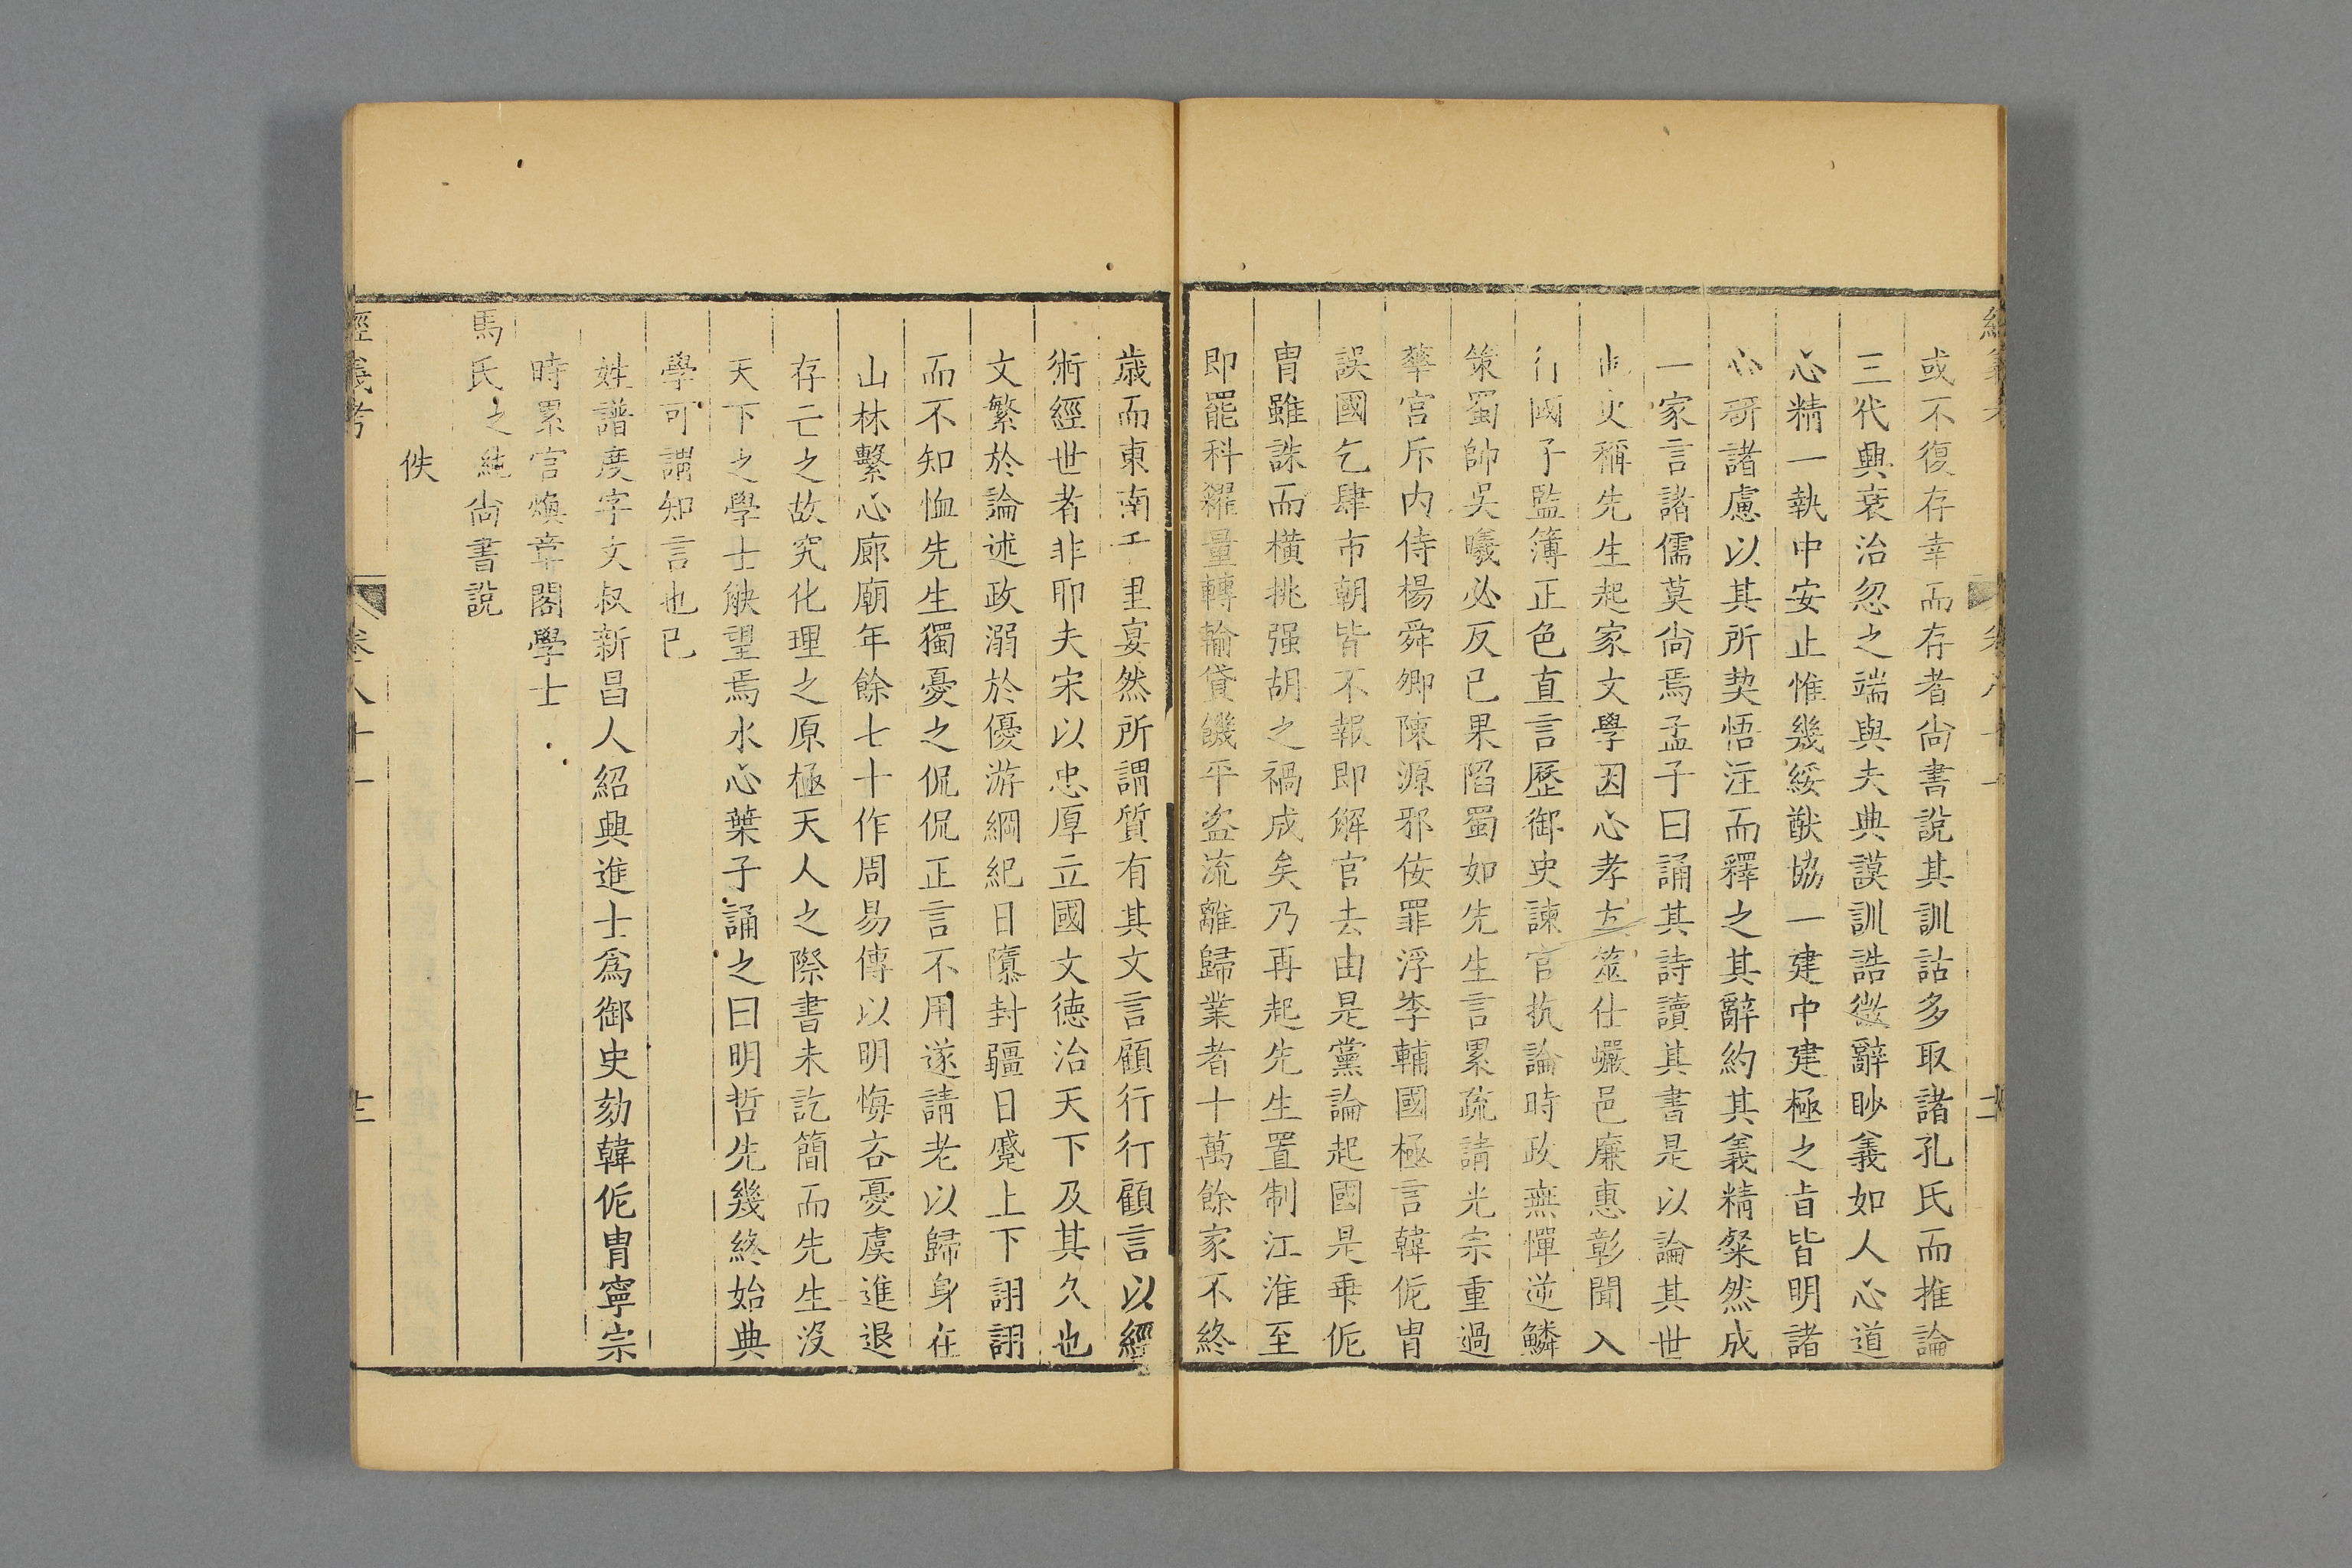 或不復存幸而存者尚書說其訓詁多取諸孔氏而推論
三代興衰治忽之端與夫典謨訓誥微辭眇義如人心道
心精一執中安止惟幾綏猷協一建中建極之旨皆明諸
心研諸慮以其所契悟注而釋之其辭約其義精粲然成
一家言諸儒莫尚焉孟子曰誦其詩讀其書是以論其世
也史稱先生起家文學因心孝友筮仕巖邑廉惠彰聞入
行國子監簿正色直言歷御史諫官抗論時政無憚逆鱗
策蜀帥吳曦必反已果陷蜀如先生言累疏請光宗重過
華宮斥內侍楊舜卿陳源邪佞罪浮李輔國極言韓侂胄
誤國乞肆市朝皆不報即解官去由是黨論起國是乗侂
胄雖誅而橫挑强胡之禍成矣乃再起先生置制江淮至
即罷科糴量轉輸貸饑平盜流離歸業者十萬餘家不終
歲而東南千里宴然所謂質有其文言顧行行顧言以經
術經世者非耶夫宋以忠厚立國文德治天下及其久也
文繁於論述政溺於優游綱紀日隳封疆日蹙上下詡詡
而不知恤先生獨憂之侃侃正言不用遂請老以歸身在
山林繫心廊廟年餘七十作周易傳以明悔吝憂虞進退
存亡之故究化理之原極天人之際書未訖簡而先生沒
天下之學士觖望焉水心葉子誦之曰明哲先幾終始典
學可謂知言也已
姓譜度字文叔新昌人紹興進士爲御史劾韓侂胄寧宗
時累官煥章閣學士
馬氏之純尚書說
佚
經義考
卷八十一